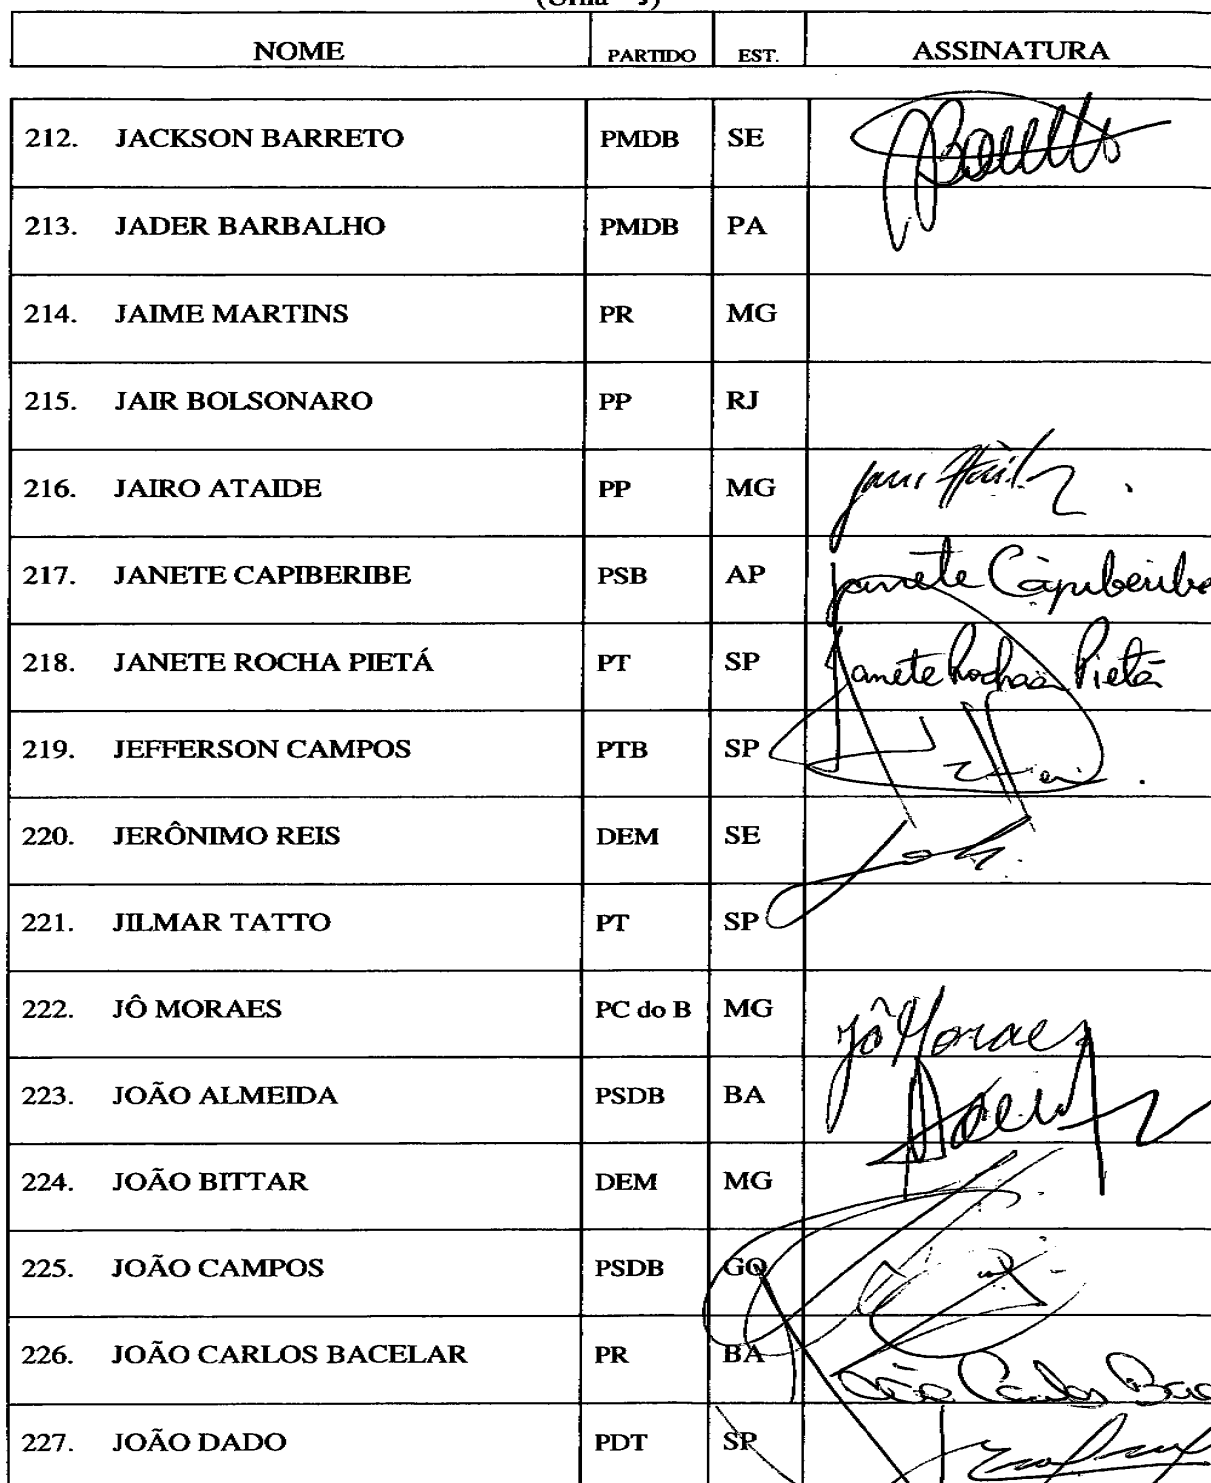 NOME PARTIDO EST. ASSINATURA
212. JACKSON BARRETO PMDB SE
213. JADER BARBALHO PMDB PA
214. JAIME MARTINS PR MG
215. JAIR BOLSONARO PP RJ
216. JAIRO ATAIDE PP MG
217. JANETE CAPIBERIBE PSB AP Janete Capiberibe
218. JANETE ROCHA PIETÁ PT SP Janete Rocha Pietá
219. JEFFERSON CAMPOS PTB SP
220. JERÔNIMO REIS DEM SE
221. JILMAR TATTO PT SP
222. JÔ MORAES PC do B MG Jô Moraes
223. JOÃO ALMEIDA PSDB BA
224. JOÃO BITTAR DEM MG
225. JOÃO CAMPOS PSDB GO
226. JOÃO CARLOS BACELAR PR BA João Carlos Bac
227. JOÃO DADO PDT SP